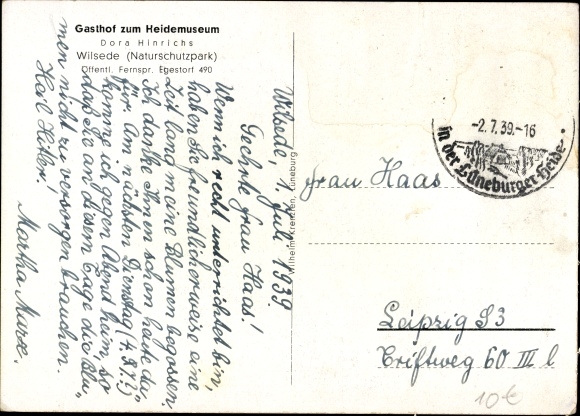 Gasthof zum Heidemuseum
Dora Hinrichs
Wilsede (Naturschutzpark)
Öffentl. Fernspr. Egestorf 490
Wilsede, 1. Juli 1939
Geehrte Frau Haas!
Wenn ich recht unterrichtet bin,
haben Sie freundlicherweise eine
Zeit lang meine Blumen begossen.
Ich danke Ihnen schon heute da-
für. Am nächsten Dienstag (4.
komme ich gegen Abend heim, so
daß Sie an diesem Tage die Blu-
men nicht zu versorgen brauchen.
Heil Hitler!
Martha
Wilhelm Krenzien, Lüneburg
-2.7.39.-16
in der Lüneburger Heide
Frau Haas
Leipzig S3
Triftweg 60 III l
10 €